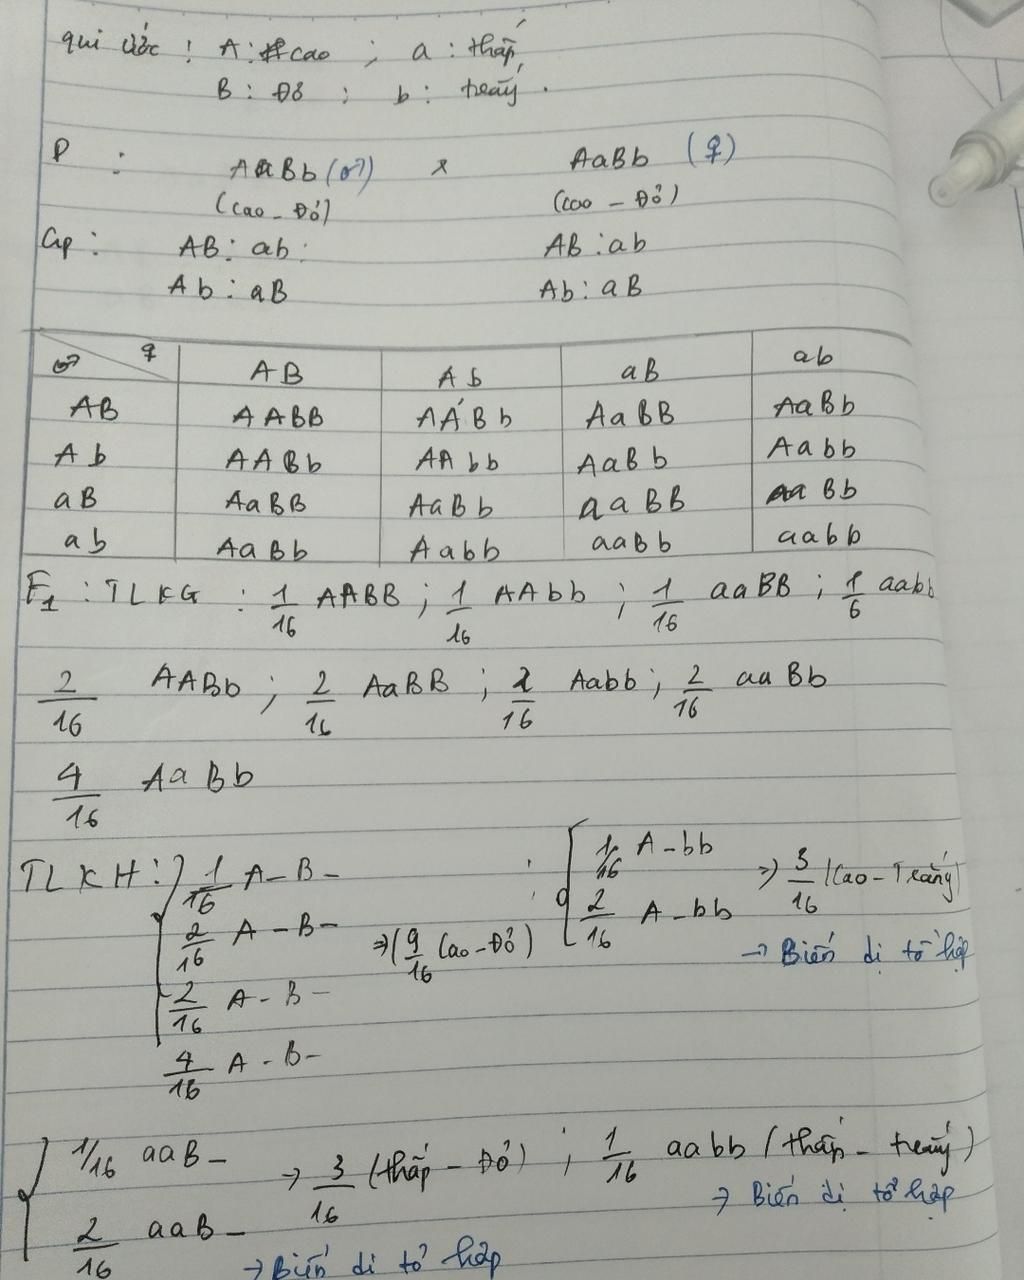 qui ước : A : cao ; a : thấp,
B : Đỏ ; b : trắng .
P : AaBb (♂) x AaBb (♀)
(Cao - Đỏ) (cao - Đỏ)
Gp : AB : ab : AB : ab
Ab : aB Ab : aB
♂ ♀ AB Ab aB ab
AB AABB AABb AaBB AaBb
Ab AABb AAbb AaBb Aabb
aB AaBB AaBb aaBB aaBb
ab AaBb Aabb aaBb aabb
F1 : TLKG : 1/16 AABB ; 1/16 AAbb ; 1/16 aaBB ; 1/6 aabb
2/16 AABb ; 2/16 AaBB ; 2/16 Aabb ; 2/16 aaBb
4/16 AaBb
TLKH : 1/16 A-B- ; 1/16 A-bb => 3/16 (Cao - Trắng)
2/16 A-B- => (9/16 Cao - Đỏ) 2/16 A-bb
→ Biến dị tổ hợp
2/16 A-B-
4/16 A-B-
1/16 aaB- → 3/16 (thấp - Đỏ) ; 1/16 aabb (thấp - trắng)
→ Biến dị tổ hợp
2/16 aaB-
→ Biến dị tổ hợp